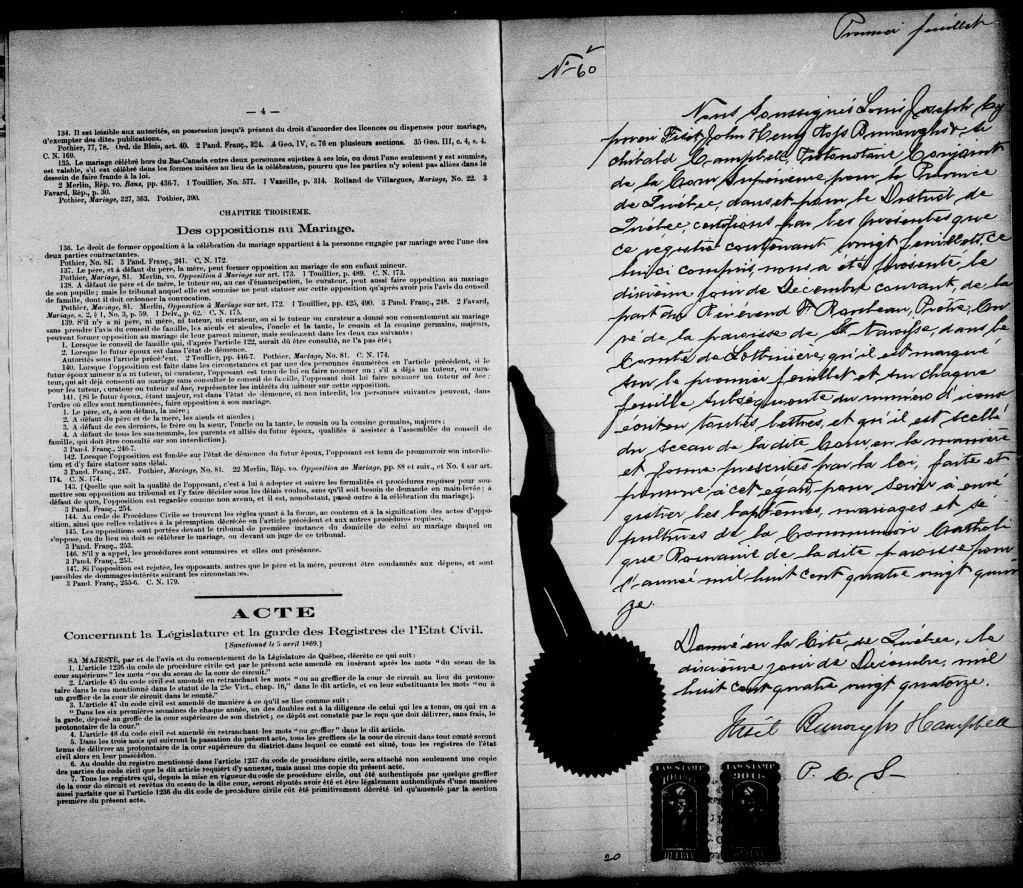 — 4 —
134. Il est loisible aux autorités, en possession jusqu'à présent du droit d'accorder des licences ou dispenses pour mariage,
d'exempter des dites publications.
Pothier, 77, 78. Ord. de Blois, art. 40. 2 Pand. Franç., 324. 4 Geo. IV, c. 76 en plusieurs sections. 35 Geo. III, c. 4, s. 4.
C. N. 169.
135. Le mariage célébré hors du Bas-Canada entre deux personnes sujettes à ses lois, ou dont l'une seulement y est soumise,
est valable, s'il est célébré dans les formes usitées au lieu de la célébration, pourvu que les parties n'y soient pas allées dans le
dessein de faire fraude à la loi.
2 Merlin, Rép. vo. Bans, pp. 436-7. 1 Touillier, No. 577. 1 Vazeille, p. 314. Rolland de Villargues, Mariage, No. 22. 3
Favard, Rép., p. 30.
Pothier, Mariage, 327, 363. Pothier, 390.
CHAPITRE TROISIÈME.
Des oppositions au Mariage.
136. Le droit de former opposition à la célébration du mariage appartient à la personne engagée par mariage avec l'une des
deux parties contractantes.
Pothier, No. 81. 3 Pand. Franç., 241. C. N. 172.
137. Le père, et à défaut du père, la mère, peut former opposition au mariage de son enfant mineur.
Pothier, Mariage, 81. Merlin, vo. Opposition à Mariage sur art. 173. 1 Touillier, p. 489. C. N. 173.
138. A défaut de père et de mère, le tuteur ou, au cas d'émancipation, le curateur, peut aussi faire opposition au mariage
de son pupille; mais le tribunal auquel elle est soumise ne peut statuer sur cette opposition qu'après avoir pris l'avis du conseil
de famille, dont il doit ordonner la convocation.
Pothier, Mariage, 81. Merlin, Opposition à Mariage sur art. 172. 1 Touillier, pp. 425, 490. 3 Pand. Franç., 248. 2 Favard,
Mariage, s. 2, § 1, No. 3, p. 59. 1 Delv., p. 62. C. N. 175.
139. S'il n'y a ni père, ni mère, ni tuteur, ni curateur, ou si le tuteur ou curateur a donné son consentement au mariage
sans prendre l'avis du conseil de famille, les aïeuls et aïeules, l'oncle et la tante, le cousin et la cousine germains, majeurs,
peuvent former opposition au mariage de leur parent mineur, mais seulement dans les deux cas suivants:
1. Lorsque le conseil de famille qui, d'après l'article 122, aurait dû être consulté, ne l'a pas été;
2. Lorsque le futur époux est dans l'état de démence.
Autorités sous l'article précédent. 2 Toullier, pp. 446-7. Pothier, Mariage, No. 81. C. N. 174.
140. Lorsque l'opposition est faite dans les circonstances et par une des personnes énumérées en l'article précédent, si le
futur époux mineur n'a ni tuteur, ni curateur, l'opposant est tenu de lui en faire nommer un; s'il a déjà un tuteur, ou cura-
teur, qui ait déjà consenti au mariage sans consulter le conseil de famille, l'opposant doit lui faire nommer un tuteur ad hoc;
pour les tuteur, curateur ou tuteur ad hoc, représenter les intérêts du mineur sur cette opposition.
141. [Si le futur époux, étant majeur, est dans l'état de démence, et non interdit, les personnes suivantes peuvent, dans
l'ordre où elles sont mentionnées, faire opposition à son mariage.
1. Le père, et, à son défaut, la mère;
2. A défaut du père et de la mère, les aïeuls et aïeules;
3. A défaut de ces derniers, le frère ou la sœur, l'oncle ou la tante, le cousin ou la cousine germains, majeurs;
4. A défaut de tous les sus-nommés, les parents et alliés du futur époux, qualifiés à assister à l'assemblée du conseil de
famille, qui doit être consulté sur son interdiction].
3 Pand. Franç., 246-7.
142. Lorsque l'opposition est fondée sur l'état de démence du futur époux, l'opposant est tenu de promouvoir son interdic-
tion et d'y faire statuer sans délai.
3 Pand. Franç., 247. Pothier, Mariage, No. 81. 22 Merlin, Rép. vo. Opposition au Mariage, pp. 88 et suiv., et No. 4 sur art.
174. C. N. 174.
143. [Quelle que soit la qualité de l'opposant, c'est à lui à adopter et suivre les formalités et procédures requises pour sou-
mettre son opposition au tribunal et l'y faire décider sous les délais voulus, sans qu'il soit besoin de demande en main-levée; à
défaut de quoi, l'opposition est regardée comme non avenue, et il est, nonobstant, passé outre à la célébration du mariage].
3 Pand. Franç., 254.
144. Au code de Procédure Civile se trouvent les règles quant à la forme, au contenu et à la signification des actes d'oppo-
sition, ainsi que celles relatives à la péremption décrétée en l'article précédent et aux autres procédures requises.
145. Les oppositions sont portées devant le tribunal de première instance du domicile de celui au mariage duquel on
s'oppose, ou du lieu où doit se célébrer le mariage, ou devant un juge de ce tribunal.
3 Pand. Franç., 253.
146. S'il y a appel, les procédures sont sommaires et elles ont préséance.
3 Pand. Franç., 253.
147. Si l'opposition est rejetée, les opposants, autres que le père et la mère, peuvent être condamnés aux dépens, et sont
passibles de dommages-intérêts suivant les circonstances.
3 Pand. Franç., 255-6. C. N. 179.
ACTE
Concernant la Législature et la garde des Registres de l'Etat Civil.
[Sanctionné le 5 avril 1869.]
SA MAJESTÉ, par et de l'avis et du consentement de la Législature de Québec, décrète ce qui suit:
1. L'article 1236 du code de procédure civile est par le présent acte amendé en insérant après les mots "du sceau de la
cour supérieure" les mots "ou du sceau de la cour de circuit."
2. L'article 45 du code civil est amendé en retranchant les mots "ou au greffier de la cour de circuit au lieu du protono-
taire dans le cas mentionné dans le statut de la 25e Vict., chap. 16," dans le dit article, et en leur substituant les mots "ou à
un greffier de la cour de circuit dans le comté."
3. L'article 47 du code civil est amendé de manière à ce qu'il se lise comme suit:
"Dans les six premières semaines de chaque année, un des doubles est à la diligence de celui qui les a tenus, ou qui en a
la garde, déposé au greffe de la cour supérieure de son district; ce dépôt est constaté par le reçu que doit délivrer, sans frais, le
protonotaire de la cour."
4. L'article 48 du code civil est amendé en retranchant les mots "ou greffier" dans le dit article.
5. Dans les trois mois qui suivront la passation du présent acte, tous les greffiers de la cour de circuit dans tout comté seront
tenus de délivrer au protonotaire de la cour supérieure du district dans lequel ce comté est situé, tous les registres de l'état
civil alors en leur possession.
6. Au double du registre mentionné dans l'article 1237 du code de procédure civile, sera attaché non seulement une copie
des parties du code civil que le dit article requiert d'y annexer, mais aussi une copie du présent acte.
7. Tous les registres qui, depuis la mise en vigueur du code de procédure civile, ont été authentiqués par quelque greffier
de la cour de circuit et revêtus du sceau de la dite cour, seront réputés avoir été et être légalement authentiqués d'une manière
aussi parfaite que si l'article 1236 du dit code de procédure civile eût été primitivement décrété tel qu'amendé par la section
première du présent acte.
Premier feuillet
No 60
Nous Soussignés Louis Joseph Cy
prien Fiset, John Henry Ross Burroughs & Ar
chibald Campbell, Protonotaire Conjoint
de la Cour Supérieure pour la Province
de Québec, dans et pour le District de
Québec certifions par les présentes que
ce registre contenant vingt feuillets, ce
lui ci compris, nous a été présenté le
dixième jour de Décembre courant, de la
part du Révérend Rondeau, Ptre, Cu
ré de la paroisse de dans le
Comté de Lotbinière, qu'il est marqué
sur le premier feuillet et sur chaque
feuille subséquente du numéro d'icelui
écrit en toutes lettres, et qu'il est scellé
du sceau de la dite Cour en la manière
et forme prescrites par la loi, faite et
pourvue à cet égard, pour servir à enre
gistrer les baptêmes, mariages et sé
pultures de la Communion Catholi
que Romaine de la dite paroisse pour
l'année mil huit cent quatre vingt quin
ze.
Donné en la Cité de Québec, le
dixième jour de Décembre, mil
huit cent quatre vingt quatorze.
Fiset Burroughs & Campbell
P. C. S.
LAW STAMP LAW STAMP
10 CTS 20 CTS
QUEBEC
20